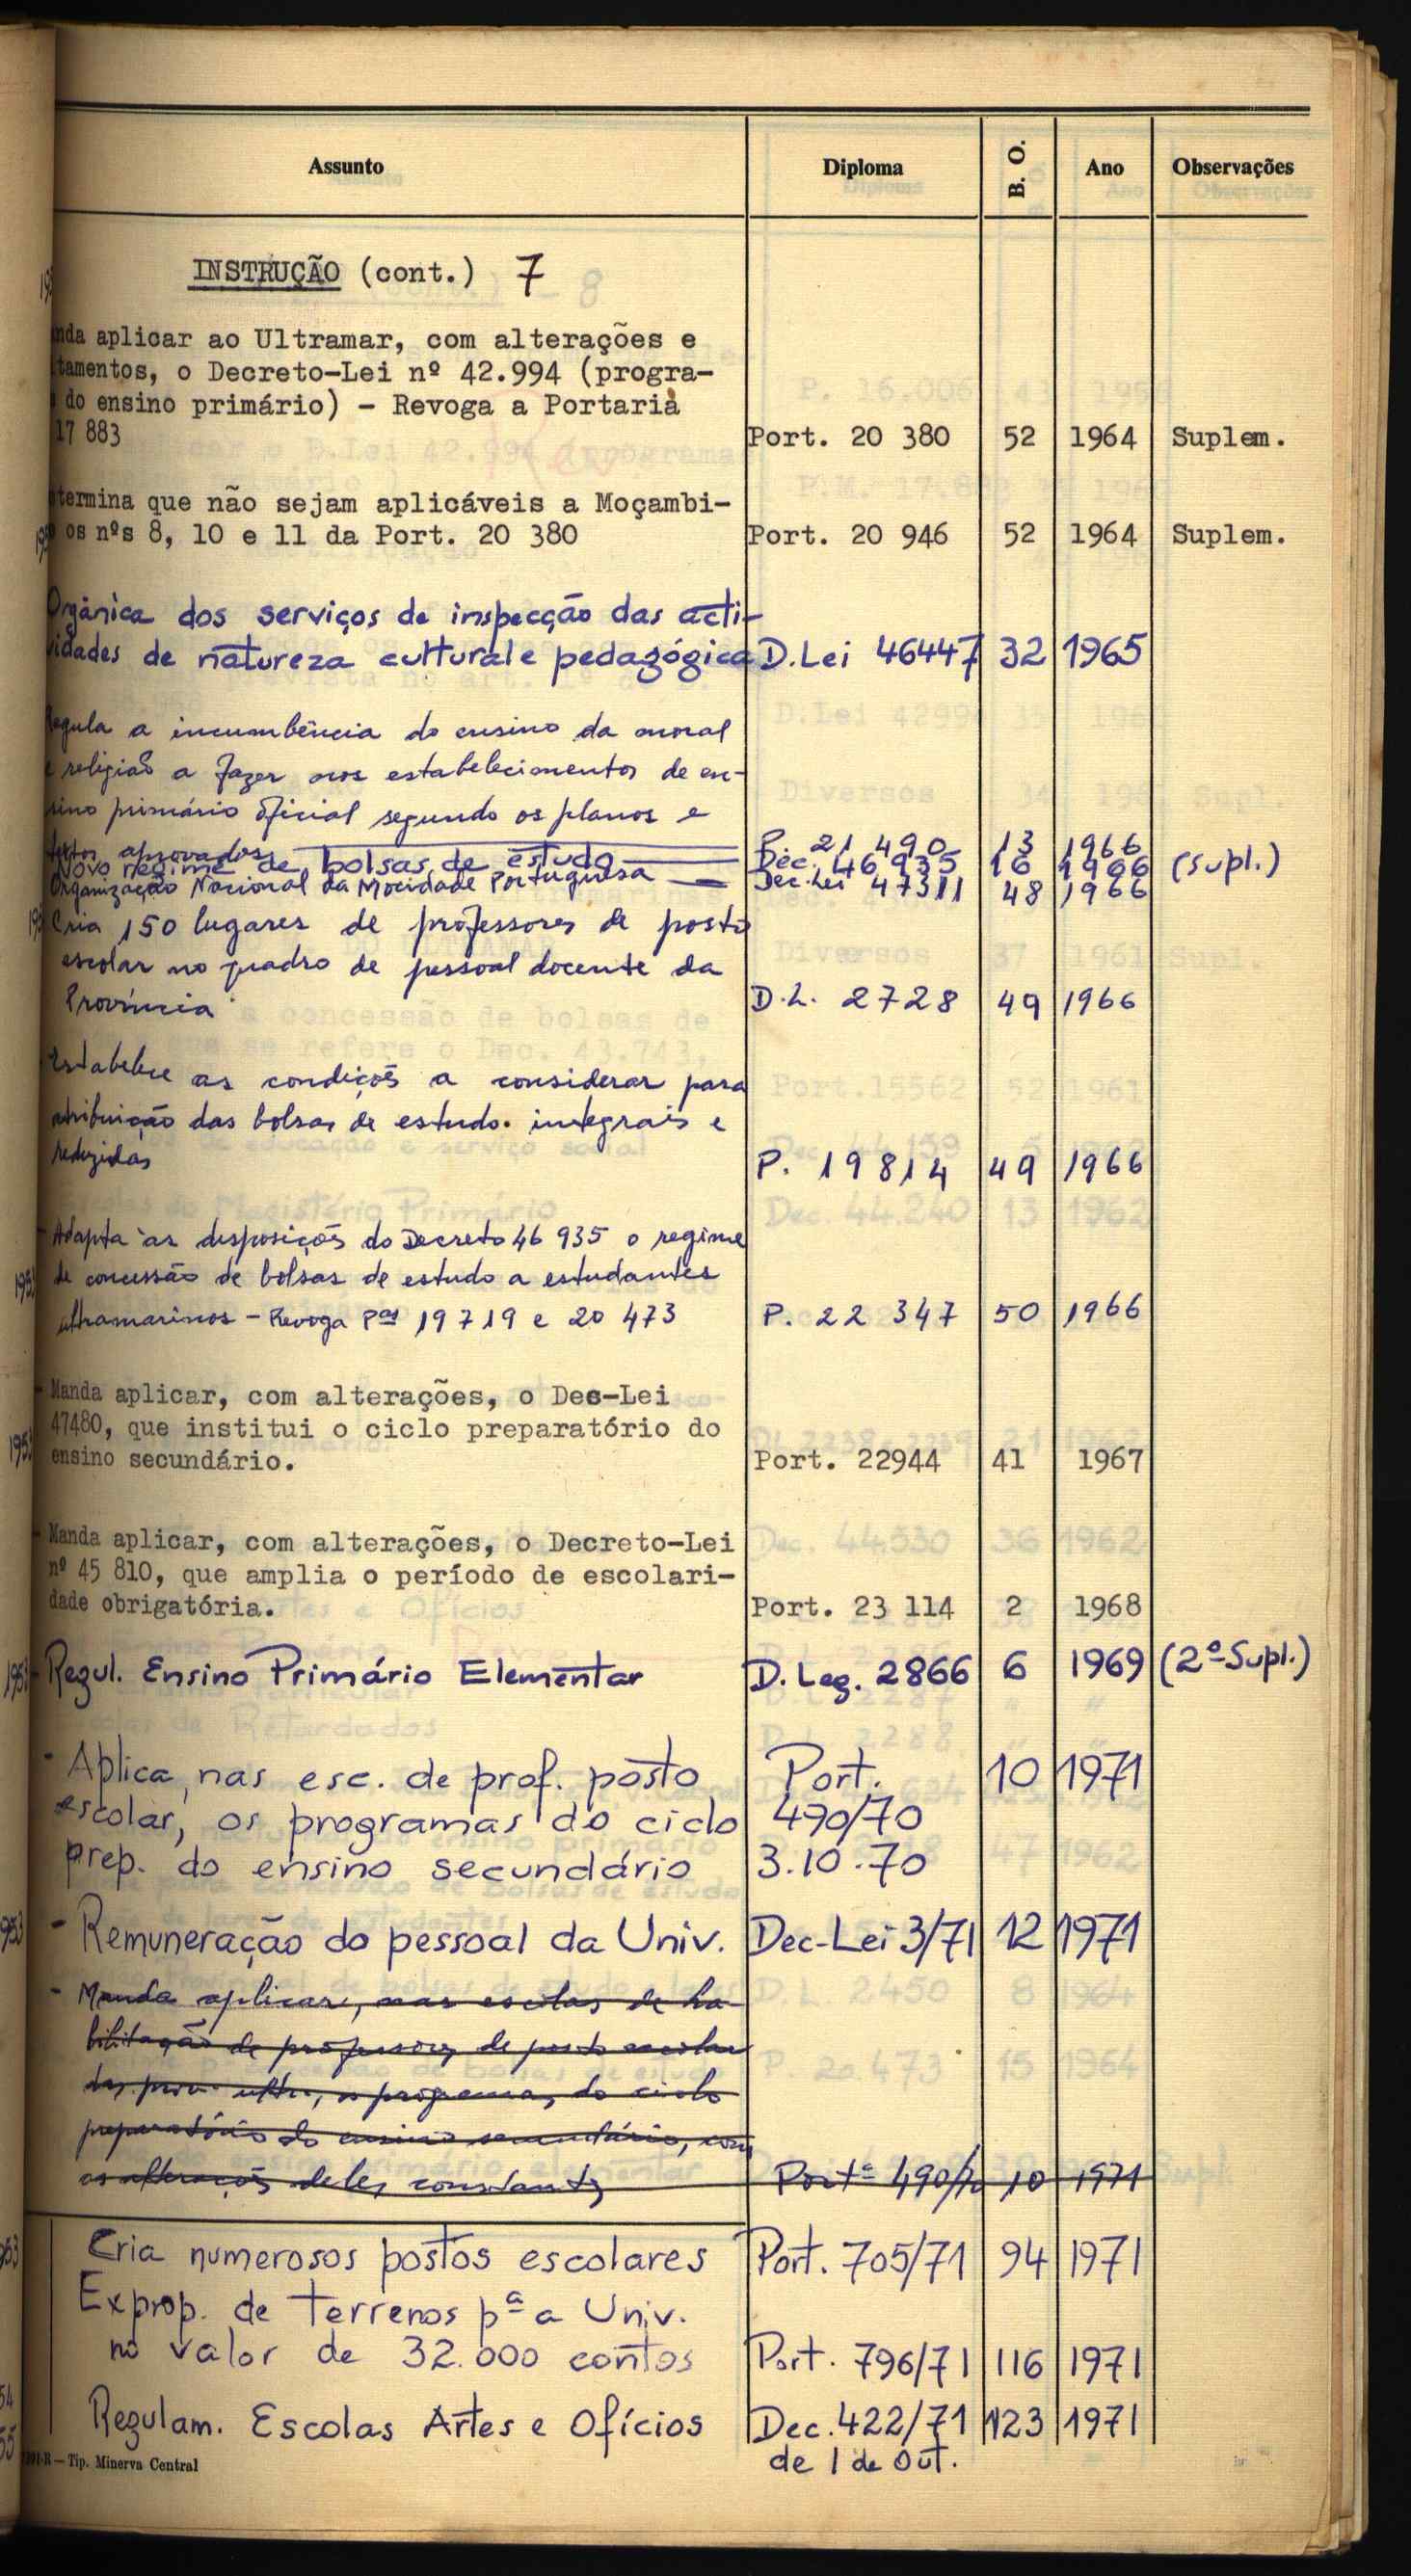 Assunto Diploma B. O. Ano Observações
INSTRUÇÃO (cont.) 7
nda aplicar ao Ultramar, com alterações e
tamentos, o Decreto-Lei nº 42.994 (progra-
do ensino primário) - Revoga a Portaria
17 883 Port. 20 380 52 1964 Suplem.
termina que não sejam aplicáveis a Moçambi-
os nºs 8, 10 e 11 da Port. 20 380 Port. 20 946 52 1964 Suplem.
Orgânica dos serviços de inspecção das acti-
vidades de natureza cultural e pedagógica D. Lei 46447 32 1965
Regula a incumbência do ensino da moral
e religião a fazer nos estabelecimentos de en-
sino primário oficial segundo os planos e
textos aprovados P. 21 490 13 1966
Novo regime de bolsas de estudo Dec. 46 935 16 1966 (supl.)
Organização Nacional da Mocidade Portuguesa Dec. Lei 47311 48 1966
Cria 150 lugares de professores de posto
escolar no quadro de pessoal docente da
Província D. L. 2728 49 1966
Estabelece as condições a considerar para
atribuição das bolsas de estudo. integrais e
reduzidas P. 19814 49 1966
- Adapta às disposições do Decreto 46 935 o regime
de concessão de bolsas de estudo a estudantes
ultramarinos - Revoga Pas 19719 e 20 473 P. 22 347 50 1966
- Manda aplicar, com alterações, o Dec-Lei
47480, que institui o ciclo preparatório do
ensino secundário. Port. 22944 41 1967
- Manda aplicar, com alterações, o Decreto-Lei
nº 45 810, que amplia o período de escolari-
dade obrigatória. Port. 23 114 2 1968
- Regul. Ensino Primário Elementar D. Leg. 2866 6 1969 (2º Supl.)
- Aplica, nas esc. de prof. posto Port. 10 1971
escolar, os programas do ciclo 490/70
prep. do ensino secundário 3.10.70
- Remuneração do pessoal da Univ. Dec-Lei 3/71 12 1971
- Manda aplicar, nas escolas de ha-
bilitação de professores de posto escolar
das prov. ultr., os programas do ciclo
preparatório do ensino secundário, com
as alterações deles constantes Portª 490/70 10 1971
Cria numerosos postos escolares Port. 705/71 94 1971
Exprop. de terrenos pª a Univ.
no valor de 32.000 contos Port. 796/71 116 1971
Regulam. Escolas Artes e Ofícios Dec. 422/71 123 1971
de 1 de Out.
R — Tip. Minerva Central